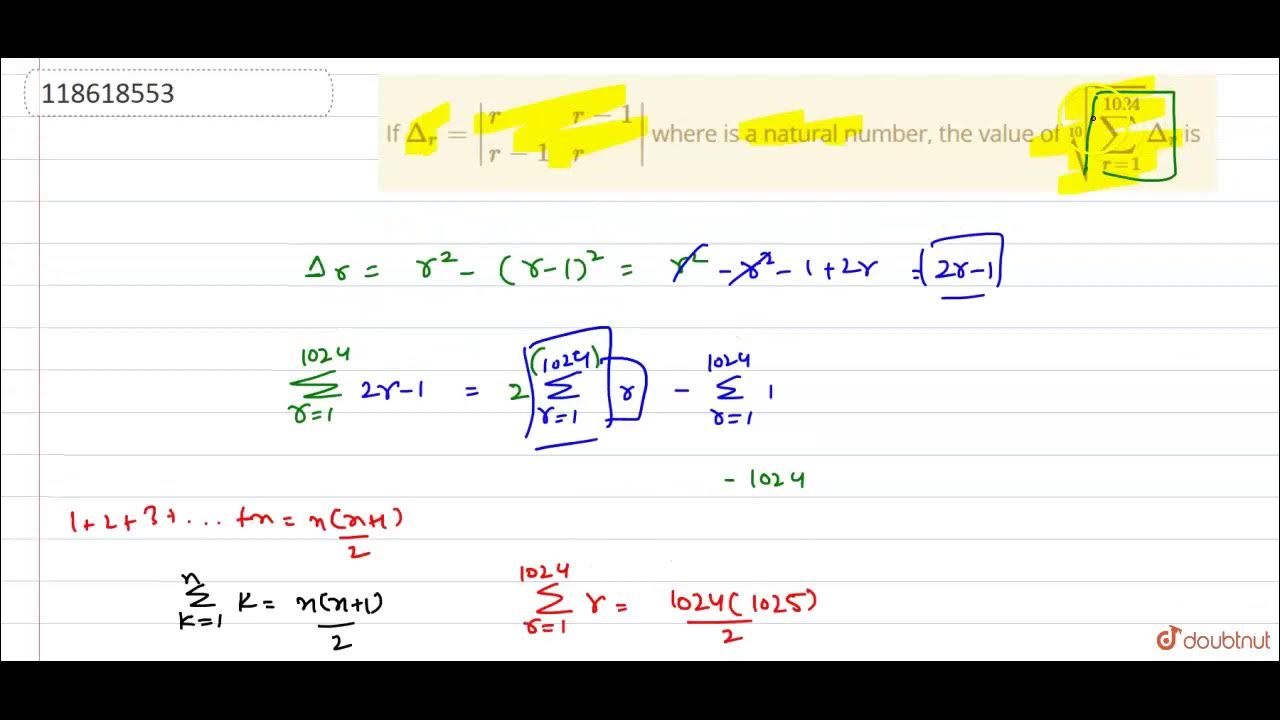 118618553
If Δ_r = |r r − 1; r − 1 r| where is a natural number, the value of \sqrt[10]{\sum_{r=1}^{1024} Δ_r} is
Δr = r² - (r-1)² = r² - r² - 1 + 2r = (2r-1
\sum_{r=1}^{1024} 2r-1 = 2 \sum_{r=1}^{(1024)} r - \sum_{r=1}^{1024} 1
- 1024
1+2+3+... +n = n(n+1)/2
\sum_{K=1}^{n} K = n(n+1)/2
\sum_{r=1}^{1024} r = 1024(1025)/2
doubtnut